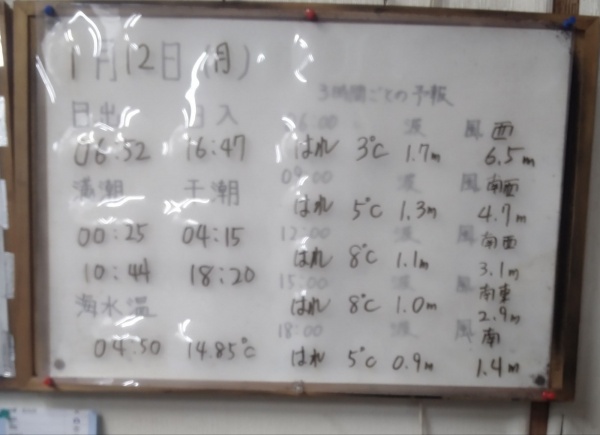 1月12日(月)
3時間ごとの予報
日出 日入
06:52 16:47
満潮 干潮
00:25 04:15
10:44 18:20
海水温
04:50 14.85℃
06:00 波 風 西
はれ 3℃ 1.7m 6.5m
09:00 波 風 南西
はれ 5℃ 1.3m 4.7m
12:00 波 風 南西
はれ 8℃ 1.1m 3.1m
15:00 波 風 南東
はれ 8℃ 1.0m 2.9m
18:00 波 風 南
はれ 5℃ 0.9m 1.4m